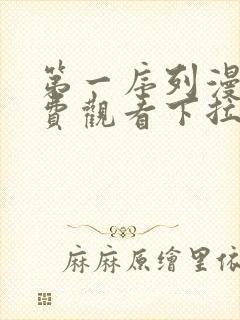 第一序列漫
費觀看下拉
麻麻原繪里依